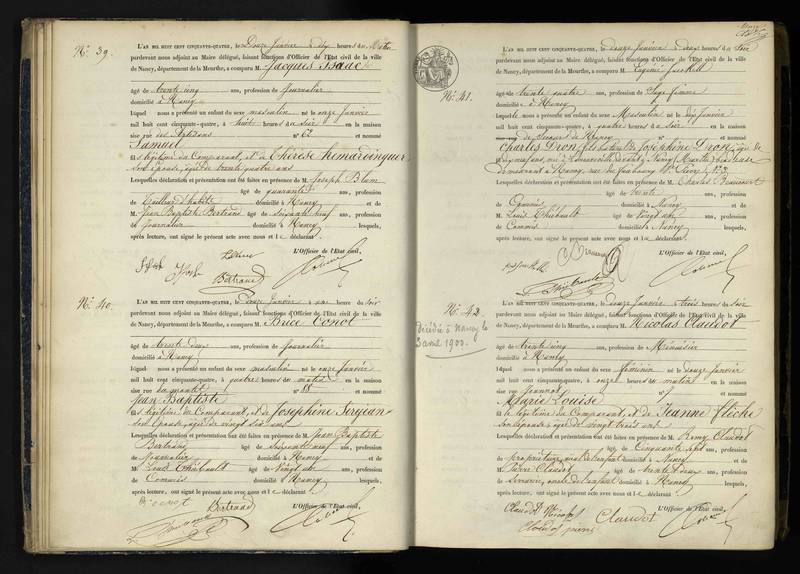 N.º 39.
L'AN MIL HUIT CENT CINQUANTE-QUATRE, le Douze Janvier à dix heures du Matin
pardevant nous adjoint au Maire délégué, faisant fonctions d'Officier de l'Etat civil de la ville
de Nancy, département de la Meurthe, a comparu M. Jacques Isaac
âgé de trente cinq ans, profession de Journalier
domicilié à Nancy
lequel nous a présenté un enfant du sexe masculin né le onze Janvier
mil huit cent cinquante-quatre, à huit heures du soir en la maison
sise rue des Artisans n.º 62 et nommé
Samuel
fils légitime du Comparant, et de Thérèse hemardinquer
son épouse, agée de trente quatre ans
Lesquelles déclaration et présentation ont été faites en présence de M. Joseph Blum
âgé de quarante ans, profession
de domicilié à Nancy et de
M. Jean Baptiste Bertrand âgé de soixante neuf ans, profession
de Journalier domicilié à Nancy lesquels,
après lecture, ont signé le présent acte avec nous et le déclarant
L'Officier de l'Etat civil,
Bertrand
N.º 40.
L'AN MIL HUIT CENT CINQUANTE-QUATRE, le Douze Janvier à une heure du soir
pardevant nous adjoint au Maire délégué, faisant fonctions d'Officier de l'Etat civil de la ville
de Nancy, département de la Meurthe, a comparu M. Brice Conot
âgé de trente deux ans, profession de Journalier
domicilié à Nancy
lequel nous a présenté un enfant du sexe masculin né le onze Janvier
mil huit cent cinquante-quatre, à quatre heures du matin en la maison
sise rue et nommé
Jean Baptiste
fils légitime du Comparant, et de Joséphine Serjean
son épouse, agée de vingt six ans
Lesquelles déclaration et présentation ont été faites en présence de M. Jean Baptiste
Bertrand âgé de soixante neuf ans, profession
de Journalier domicilié à Nancy et de
M. Louis Thiébault âgé de vingt ans, profession
de Commis domicilié à Nancy lesquels,
après lecture, ont signé le présent acte avec nous et le déclarant
B. conot Bertrand L'Officier de l'Etat civil,
N.º 41.
L'AN MIL HUIT CENT CINQUANTE-QUATRE, le douze Janvier à deux heures du soir
pardevant nous adjoint au Maire délégué, faisant fonctions d'Officier de l'Etat civil de la ville
de Nancy, département de la Meurthe, a comparu M. Eugénie
âgée de trente quatre ans, profession de Sage femme
domiciliée à Nancy
laquelle nous a présenté un enfant du sexe Masculin né le dix Janvier
mil huit cent cinquante-quatre, à quatre heures du soir en la maison
sise de Secours de Nancy et nommé
Charles Dron, fils naturel de Joséphine Dron
demeurant à Nancy, rue du faubourg St. Pierre, N.º 3
Lesquelles déclaration et présentation ont été faites en présence de M. Charles
âgé de trente ans, profession
de Commis domicilié à Nancy et de
M. Louis Thiébault âgé de vingt ans, profession
de Commis domicilié à Nancy lesquels,
après lecture, ont signé le présent acte avec nous et la déclarant
L'Officier de l'Etat civil,
N.º 42.
décédée à Nancy le
3 avril 1900.
L'AN MIL HUIT CENT CINQUANTE-QUATRE, le douze Janvier à trois heures du soir
pardevant nous adjoint au Maire délégué, faisant fonctions d'Officier de l'Etat civil de la ville
de Nancy, département de la Meurthe, a comparu M. Nicolas Claudot
âgé de trente cinq ans, profession de Menuisier
domicilié à Nancy
lequel nous a présenté un enfant du sexe féminin né le douze Janvier
mil huit cent cinquante-quatre, à onze heures du matin en la maison
sise rue et nommé
Marie Louise
fille légitime du Comparant, et de Jeanne flèche
son épouse agée de vingt trois ans
Lesquelles déclaration et présentation ont été faites en présence de M. Remy Claudot
âgé de Cinquante sept ans, profession
de propriétaire, domicilié à Nancy et de
M. Pierre Claudot âgé de trente deux ans, profession
de Serrurier, oncle de l'enfant domicilié à Nancy lesquels,
après lecture, ont signé le présent acte avec nous et le déclarant
Claudot Nicolas Claudot L'Officier de l'Etat civil,
Claudot pierre